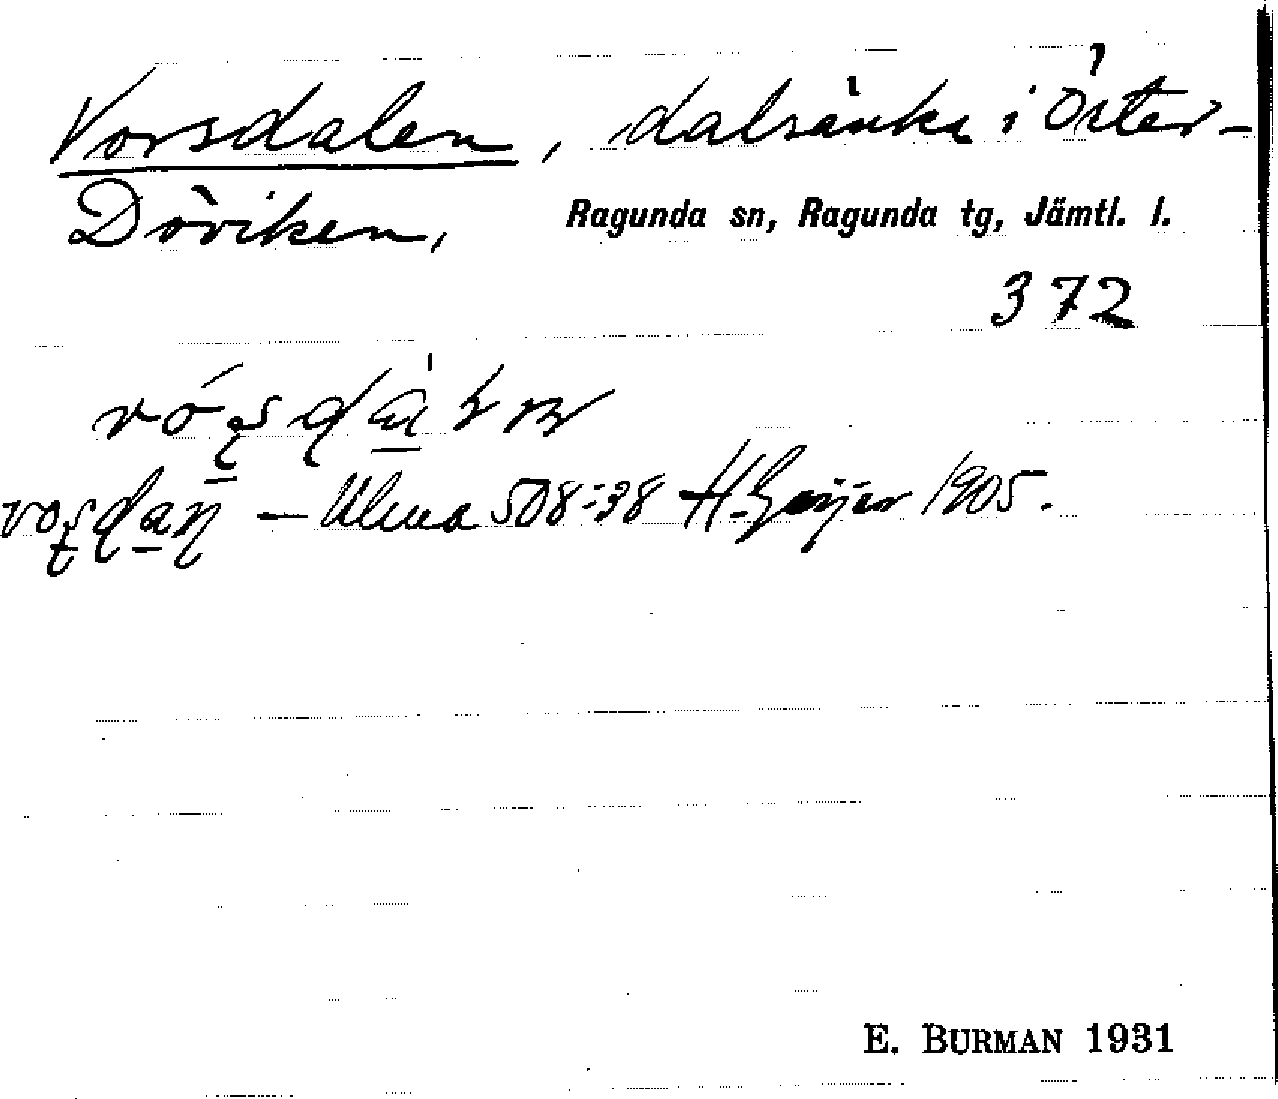 Vorsdalen, dalsänka i Öster-
Döviken, Ragunda sn, Ragunda tg, Jämtl. l.
372
— Ulma 508:38 H. Geijer 1905.
E. BURMAN 1931